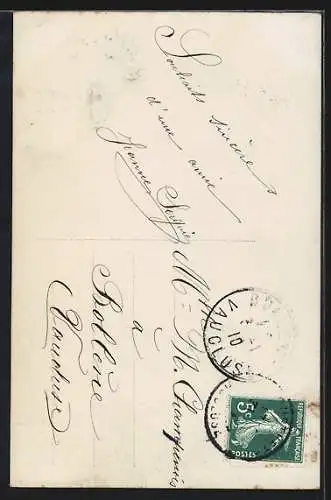 Souhaits sincères
d'une amie
Jeanne
M<sup>lle</sup> M. Championne
à
Bollène
Vaucluse
VAUCLUSE
10
REPUBLIQUE FRANÇAISE
5c
POSTES